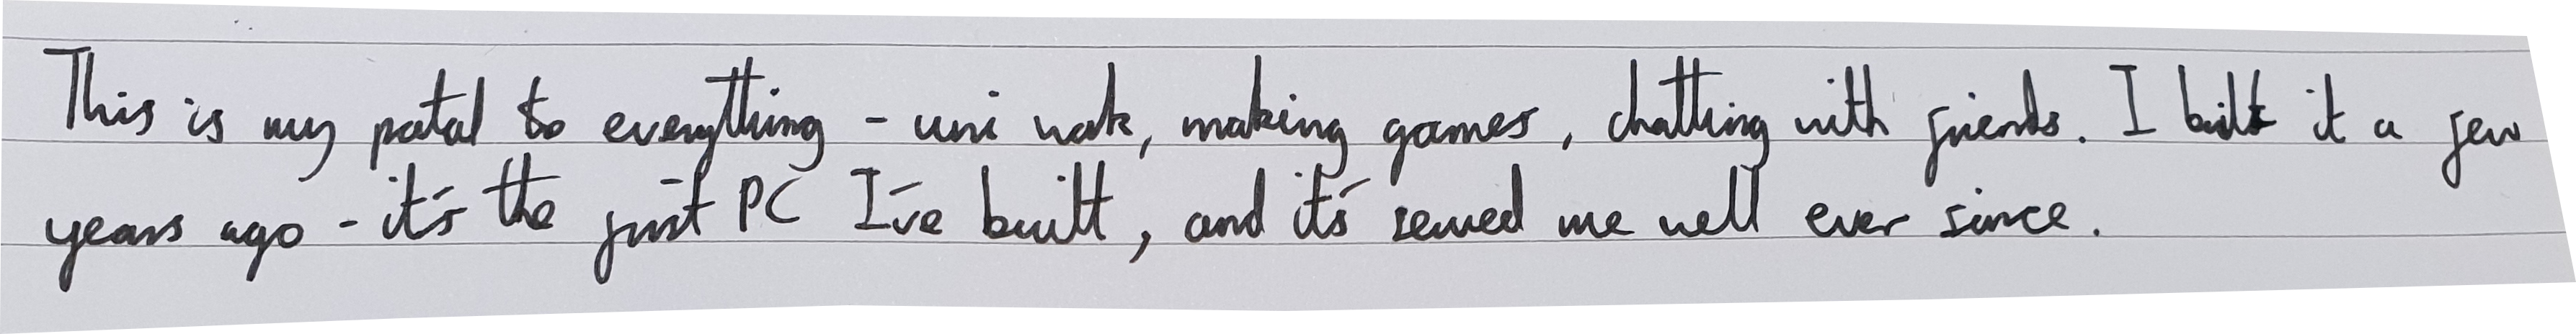 This is my portal to everything - uni work, making games, chatting with friends. I built it a few
years ago - it's the first PC I've built, and it's served me well ever since.